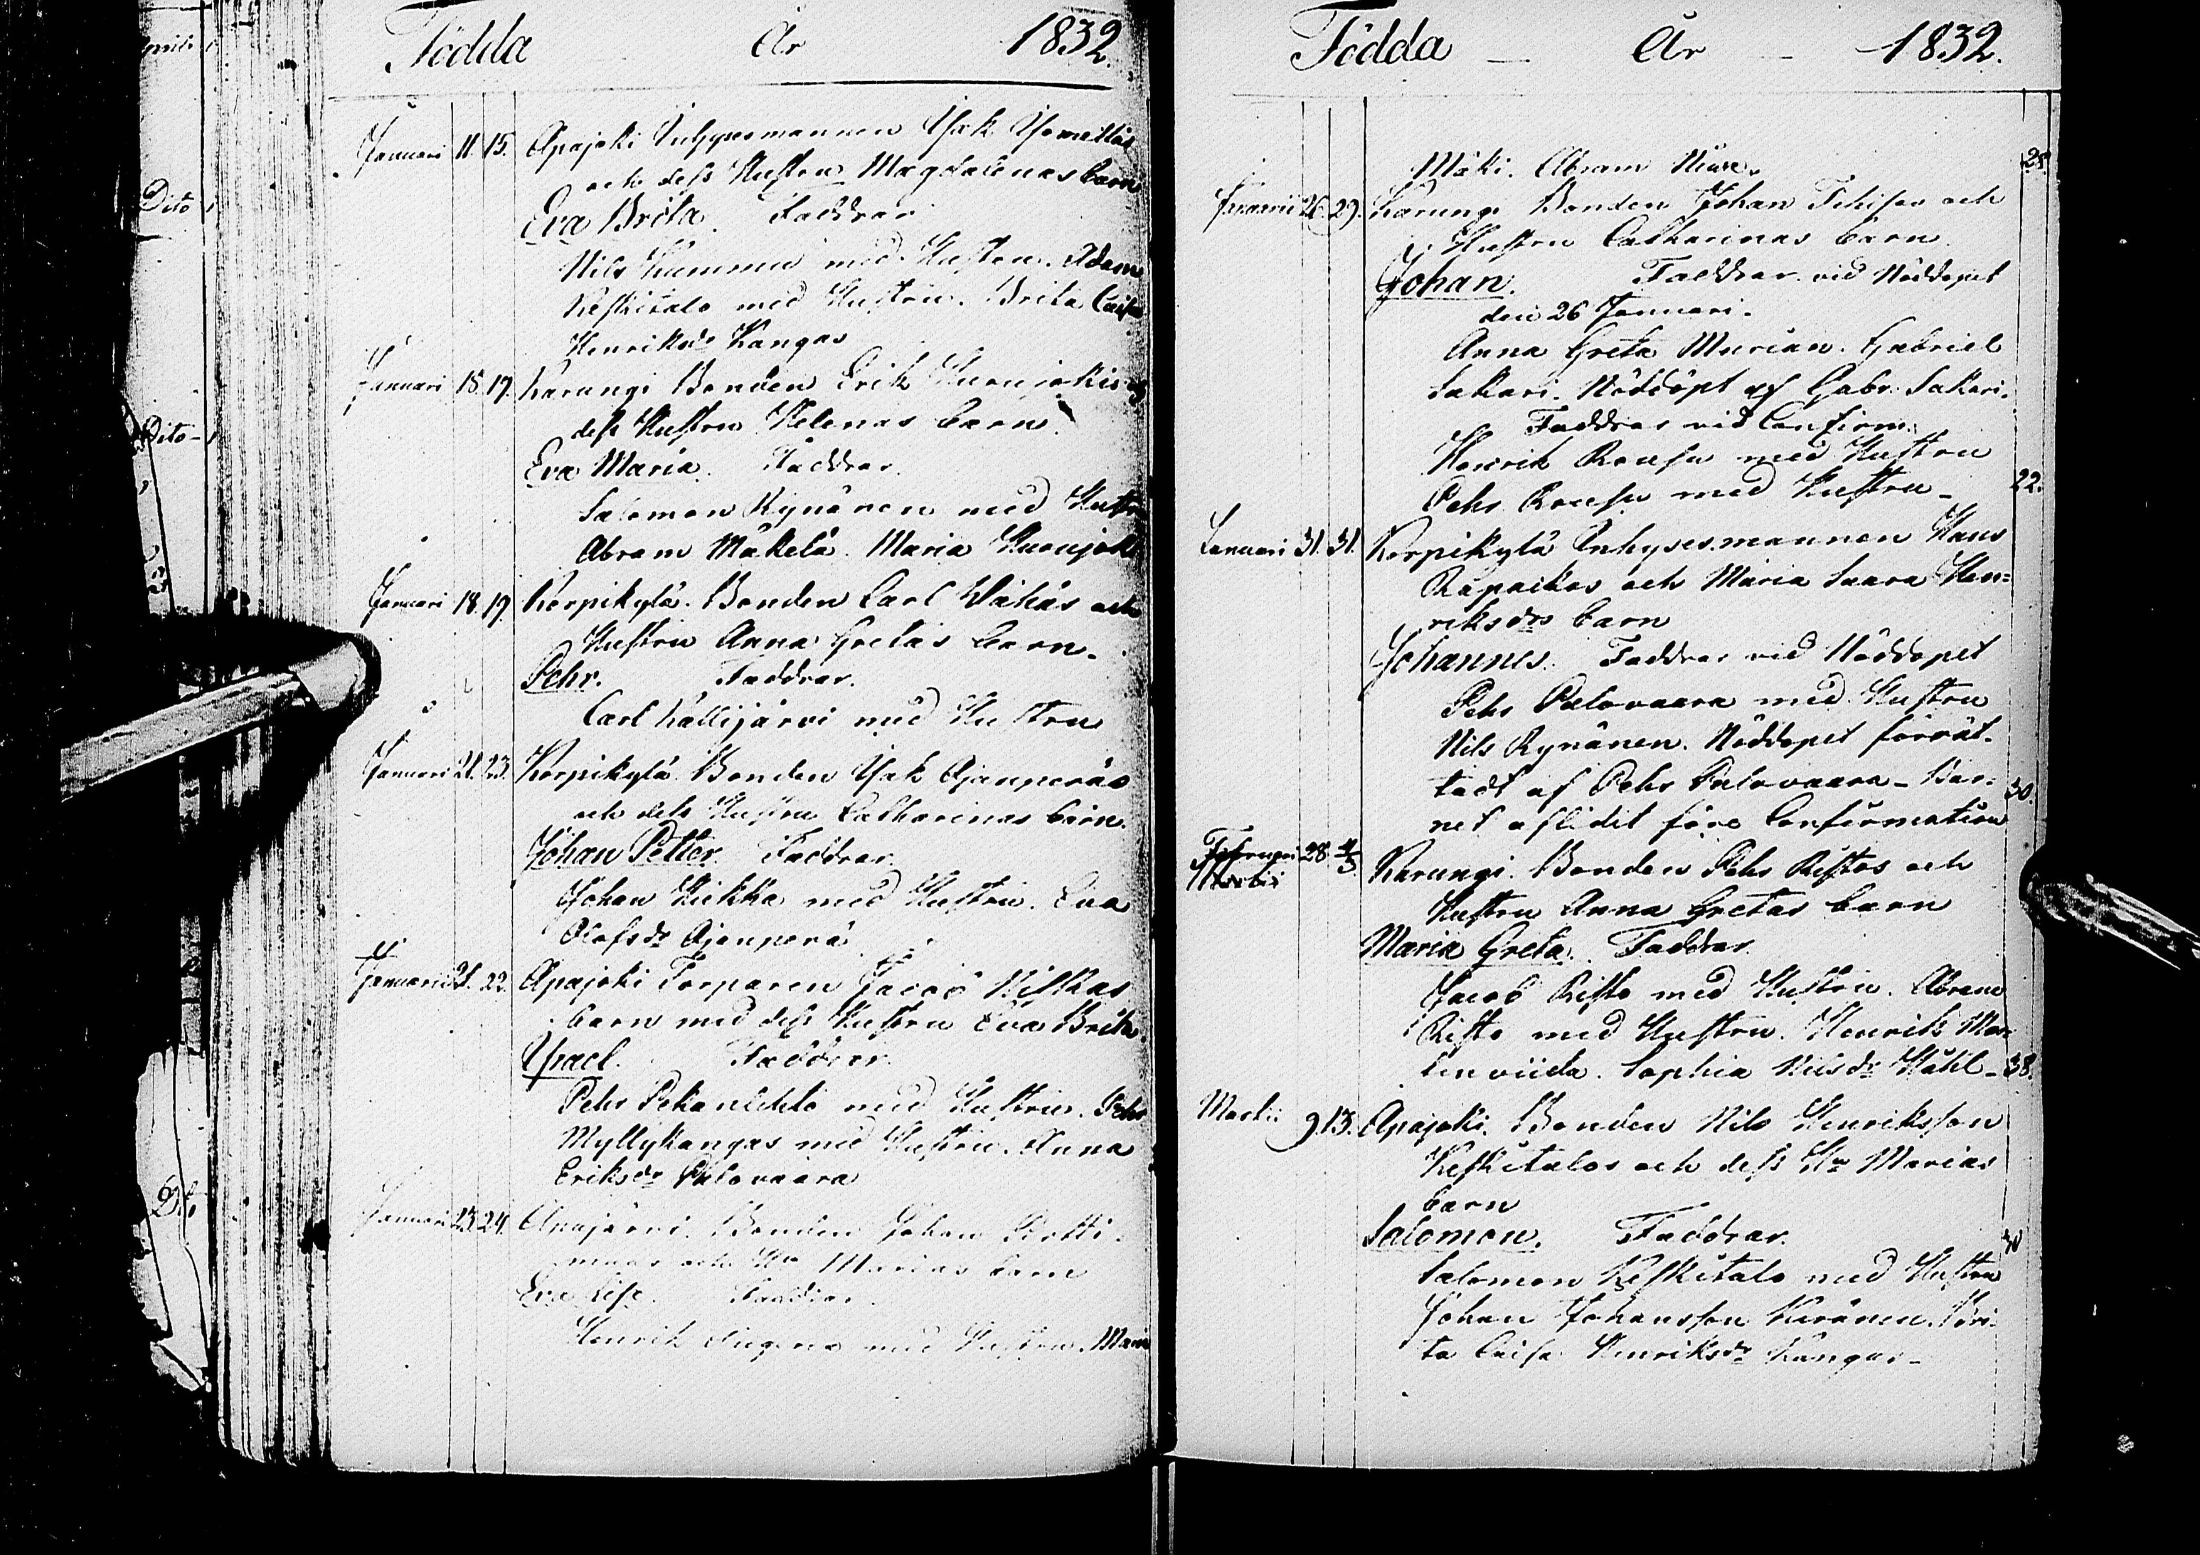 Födda År 1832.
Januari 11. 15. Apajoki Inhysesmannen Isak
och dess Hustru Magdalenas barn
Eva Brita. Faddrar
Nils Kummu med Hustru. Adam
Keskitalo med Hustru. Brita Caisa
Henriksdr Kangas
Januari 15. 17. Karungi Bonden Erik Kuoujokis
dess Hustru Helenas barn
Eva Maria. Faddrar.
Salomon Kynänen med Hustru
Abram Mäkelä. Maria Kuoujoki
Januari 18. 19. Korpikylä. Bonden Carl och
Hustru Anna Gretas barn.
Pehr. Faddrar.
Carl Kallijärvi med Hustru
Januari 21. 23. Korpikylä. Bonden Isak Ajanperäs
och dess Hustru Catharinas barn.
Johan Petter. Faddrar.
Johan med Hustru. Eva
Olofsdr Ajanperä
Januarii 21. 22. Apajoki Torparen Jacob Niskas
barn med dess Hustru Eva Brita
Israel. Faddrar.
Pehr Pekanlehto med Hustru. Pehr
Myllykangas med Hustru. Anna
Eriksdr Palovaara
Januari 23. 24. Bonden Johan
och Hu Marias barn
Eva Lisa. Faddrar.
Henrik med Hustru. Maria
Födda – År – 1832.
Mäki. Abram 28.
Januarii 26. 29. Karungi Bonden Johan och
Hustru Catharinas barn.
Johan. Faddrar vid Nöddopet
den 26 Januari.
Anna Greta Murian. Gabriel
Sakari. Nöddöpt af Gabr. Sakari.
Faddrar vid Confirm.
Henrik Rousu med Hustru
Pehr Rousu med Hustru – 22.
Januari 31. 31. Korpikylä Inhysesmannen Hans
Räpaikos och Maria Saara Hen=
riksdrs barn
Johannes. Faddrar vid Nöddopet
Pehr Palovaara med Hustru
Nils Kynänen. Nöddopet förrät-
tadt af Pehr Palovaara – Bar- 30.
net aflidit före Confirmation
Februari 28. 4/3 Karungi. Bonden Pehr Ristos och
Martii
Hustru Anna Gretas barn
Maria Greta. Faddrar.
Jacob Risto med Hustru. Abram
Risto med Hustru. Henrik Mar-
tinviida. Sophia Nilsdr – 38.
Martii 9 13. Apajoki. Bonden Nils Henriksson
Keskitalos och dess Hu Marias
barn
Salomon. Faddrar. 30
Salomon Keskitalo med Hustru
Johan Johansson Keränen. Bri-
ta Caisa Henriksdr Kangas –
Dito
Dito
Dito